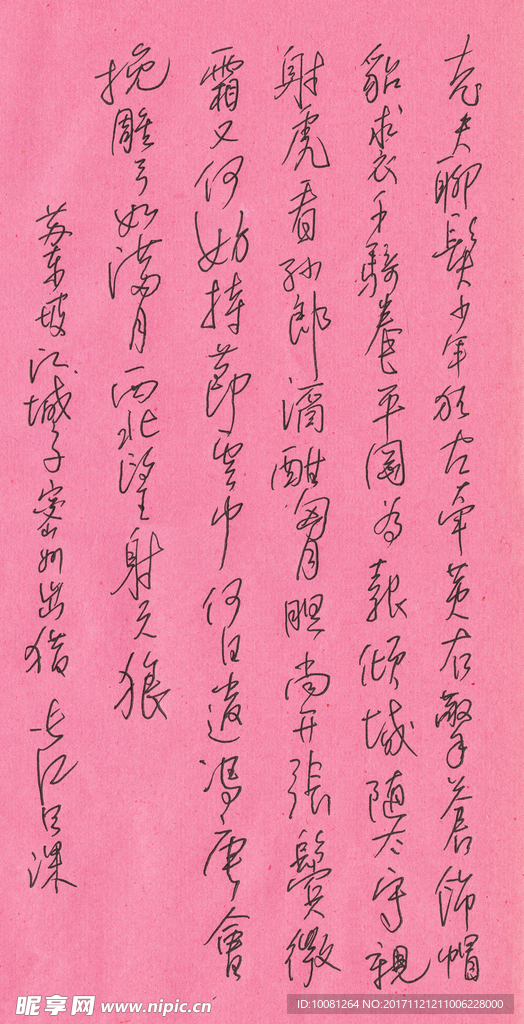 老夫聊髮少年狂左牽黄右擎蒼錦帽
貂裘千騎卷平岡为報傾城随太守親
射虎看孙郎酒酣胸胆尚开張鬢微
霜又何妨持節雲中何日遣馮唐會
挽雕弓如满月西北望射天狼
苏东坡江城子密州出猎 长江日深
昵享网 www.nipic.cn
ID:10081264 NO:20171121211006228000